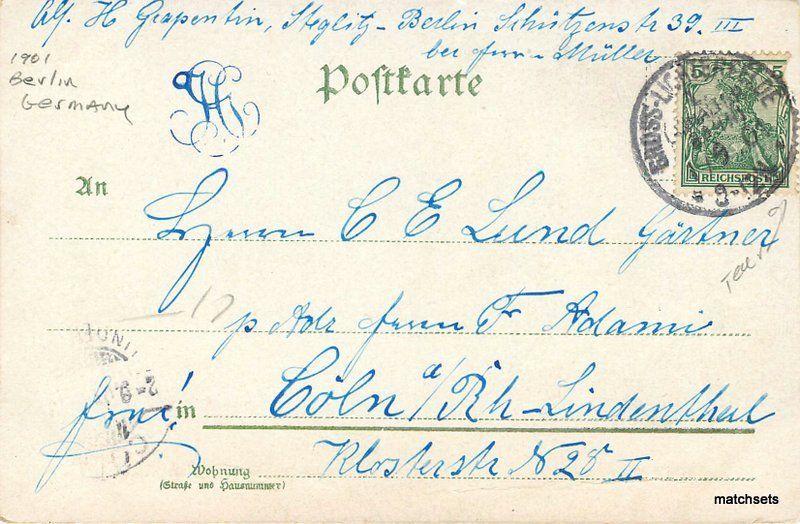 Abs. H Grapentin, Steglitz-Berlin Schützenstr 39. III
bei Herrn Müller
1901
Berlin
Germany
Postkarte
5 5
GROSS-LICHTERFELDE
REICHSPOST
9-12V
An
Herrn C E Lund Gärtner
p Adr Herrn Fr Adami
in Cöln a/Rh-Lindenthal
Klosterstr N 28 II
Wohnung
(Straße und Hausnummer)
matchsets